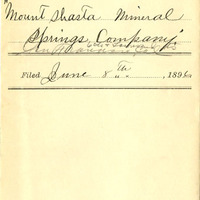 "Mount Shasta Mineral
Springs Company"
Filed June 8th, 1896